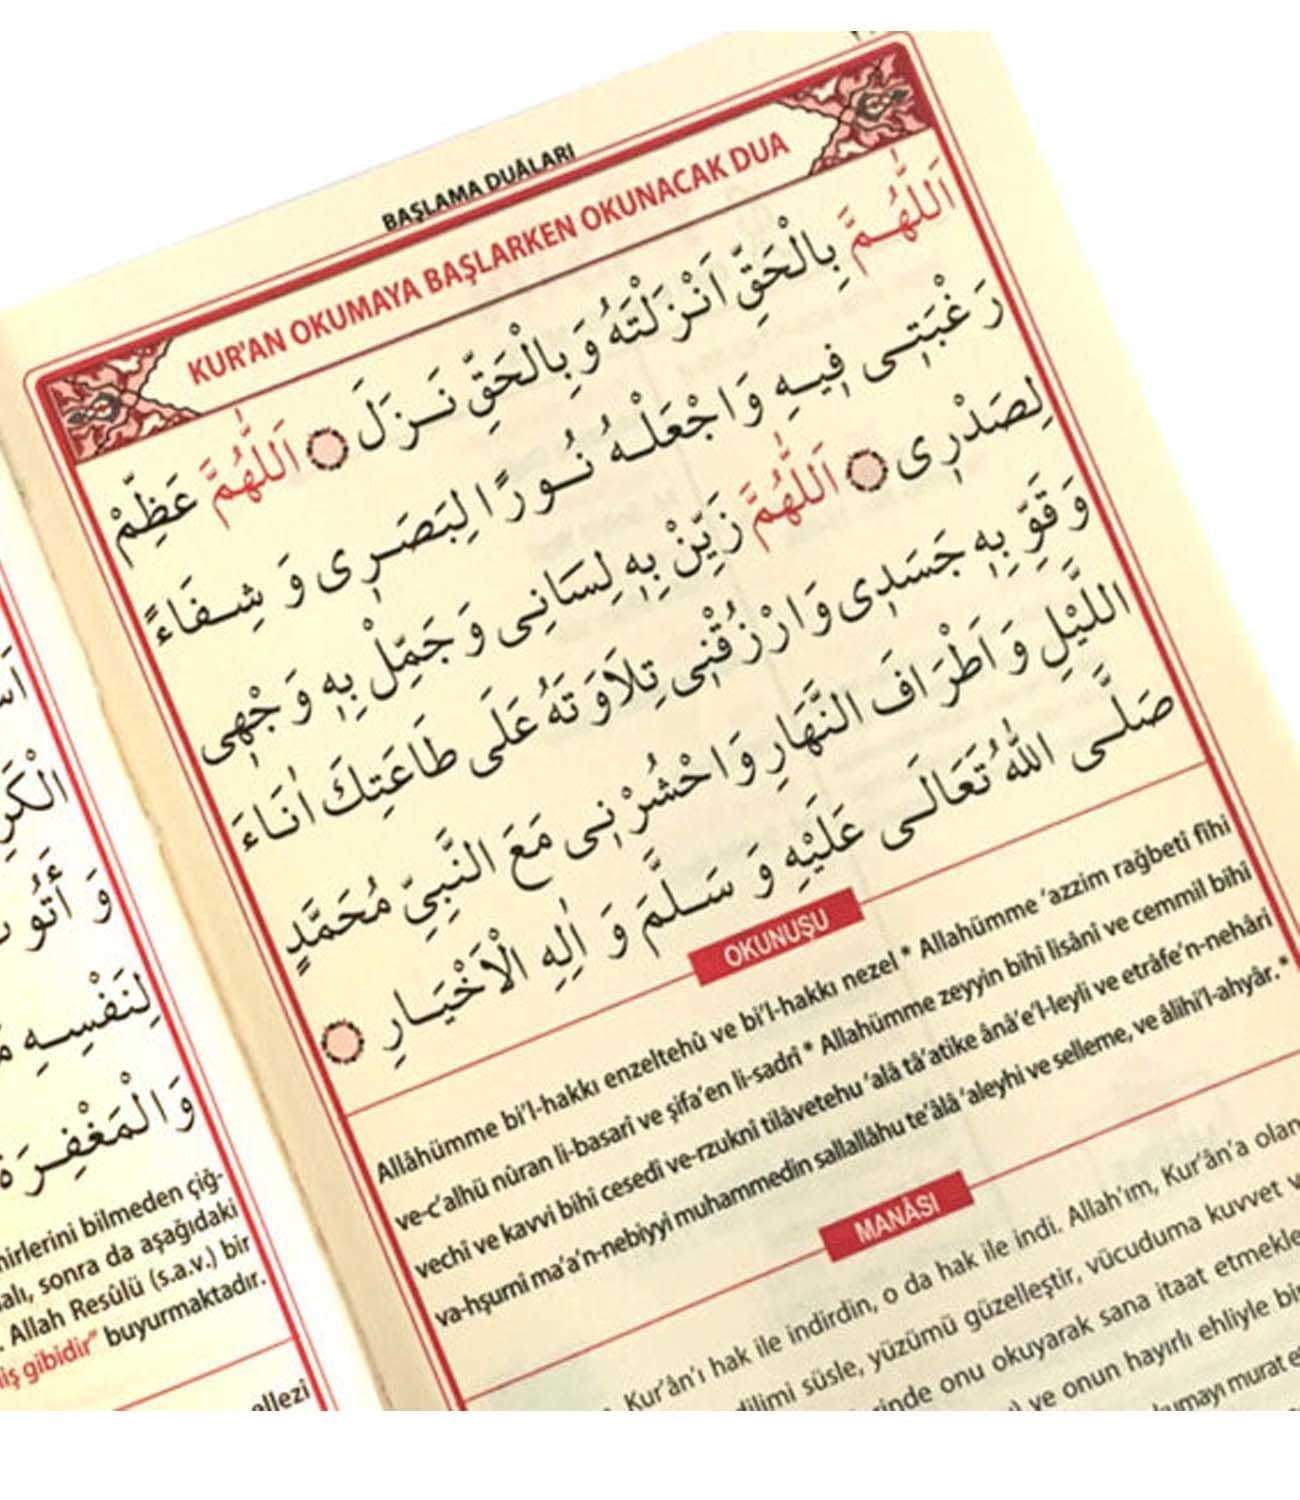 BAŞLAMA DUÂLARI
KUR'AN OKUMAYA BAŞLARKEN OKUNACAK DUA
اَللّٰهُمَّ بِالْحَقِّ اَنْزَلْتَهُ وَبِالْحَقِّ نَزَلَ اَللّٰهُمَّ عَظِّمْ
رَغْبَتِى فِيهِ وَاجْعَلْهُ نُورًا لِبَصَرِى وَ شِفَاءً
لِصَدْرِى اَللّٰهُمَّ زَيِّنْ بِهِ لِسَانِى وَ جَمِّلْ بِهِ وَجْهِى
وَقَوِّ بِهِ جَسَدِى وَارْزُقْنِى تِلَاوَتَهُ عَلَى طَاعَتِكَ اٰنَاءَ
اللَّيْلِ وَاَطْرَافَ النَّهَارِ وَاحْشُرْنِى مَعَ النَّبِىِّ مُحَمَّدٍ
صَلَّى اللّٰهُ تَعَالَى عَلَيْهِ وَ سَلَّمَ وَ اٰلِهِ الْاَخْيَارِ
OKUNUŞU
Allâhümme bi'l-hakkı enzeltehû ve bi'l-hakkı nezel * Allahümme 'azzim rağbetî fîhi
ve-c'alhü nûran li-basarî ve şifa'en li-sadrî * Allahümme zeyyin bihî lisânî ve cemmil bihî
vechî ve kavvi bihî cesedî ve-rzuknî tilâvetehu 'alâ tâ'atike ânâ'e'l-leyli ve etrâfe'n-nehâri
va-hşurnî ma'a'n-nebiyyi muhammedin sallallâhu te'âlâ 'aleyhi ve selleme, ve âlihi'l-ahyâr. *
MANÂSI
Kur'ân'ı hak ile indirdin, o da hak ile indi. Allah'ım, Kur'ân'a olan
dilimi süsle, yüzümü güzelleştir, vücuduma kuvvet
onu okuyarak sana itaat etmekle
ve onun hayırlı ehliyle
murat
الْكَرِ
لِنَفْسِهِ
وَالْمَغْفِرَةَ
bilmeden çiğ-
sonra da aşağıdaki
Allah Resûlü (s.a.v.) bir
gibidir" buyurmaktadır.
ellezî